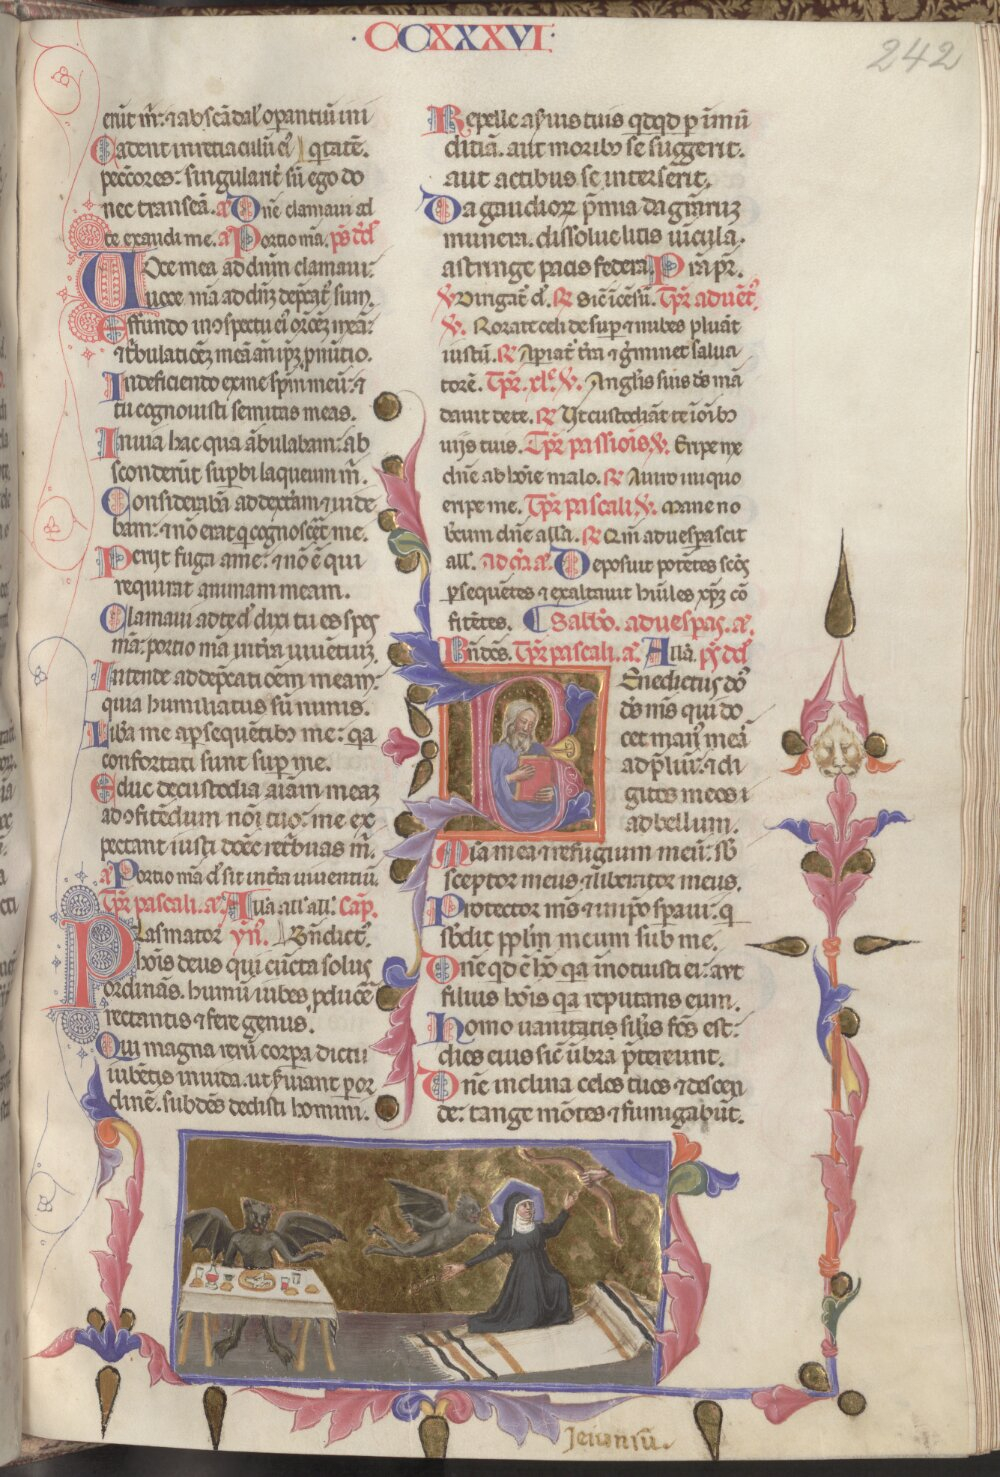 ·CCXXXVI·
242
Cadent in retiaculū eī qrtatē.
peccores: singularit sū ego do
nec transeā. a Dne clamaui ad
te exaudi me. a Portio ma. ps dd
Uoce mea ad dnm clamaui:
uoce mā ad dnz depcat sum.
Effundo in
Indeficiendo ex me spm meū: ⁊
tu cognouisti semitas meas.
In uia hac qua ābulabam: ab
sconderūt supbi laqueum m.
Considerabā ad dextam ⁊ uide
bam: ⁊ nō erat q cognoscet me.
Perijt fuga a me: ⁊ nō ē qui
requirat animam meam.
Clamaui ad te d dixi tu es spes
mā: portio mā in tra uiuētiuz.
Intende ad depcatiōem meam:
quia humiliatus sū nimis.
Libā me a psequētibo me: qa
confortati sunt sup me.
Educ de custodia aīam meaz
ad ofitēdum nōi tuo: me ex
pectant iusti donec retbuas m.
a Portio mā d sit in tra uiuentiū.
Tpr pascali. a. Alla all' all'. Cap.
Plasmator yn. Bndict.
hois deus qui cūcta solus
ordinās. humū iubes pducē
rectantis ⁊ fere genus.
Qui magna rerū corpa dictu
iubētis uiuida. ut suiant p or
dinē. subdēs dedisti homini.
Repelle a suis tuis qdqd p imū
ditiā. aut moribo se suggerit.
aut actibus se interserit.
Da gaudioꝝ pmia da gratiaruz
munera. dissolue litis uicula.
astringe pacis federa. Pra pr.
℣ Dirigat d. ℟ Sic icēsū. Tpr aduēt.
℣. Rorate celi desup ⁊ nubes pluāt
iustū. ℟ Apiat tra ⁊ gminet salua
torē. Tpr. xle. ℣. Anglis suis ds mā
dauit de te. ℟ Ut custodiāt te i oibo
uijs tuis. Tpr passiois. ℣. Eripe me
dne ab hoie malo. ℟ A uiro iniquo
eripe me. Tpr pascali ℣. Mane no
bcum dne alla. ℟ Qm aduesperascit
all'. ad m a. Deposuit potētes scos
psequētes ⁊ exaltauit huiles xpz cō
fitētes. Sabbo. ad uespas. a.
Bndcs. Tpr pascali. a. Alla. ps dd
Benedictus do
ds ms qui do
cet man meā
ad pliū: ⁊ di
gitos meos i
ad bellum.
Mia mea ⁊ refugium meū: sb
sceptor meus ⁊ liberator meus.
Protector ms ⁊ in ipo spaui: q
sbdit pplm meum sub me.
Dne qd ē ho qa inotuisti ei: aut
filius hois qa reputans eum.
Homo uanitatis silis fcs est:
dies eius sic ūbra ptereunt.
Dne inclina celos tuos ⁊ descen
de: tange mōtes ⁊ fumigabūt.